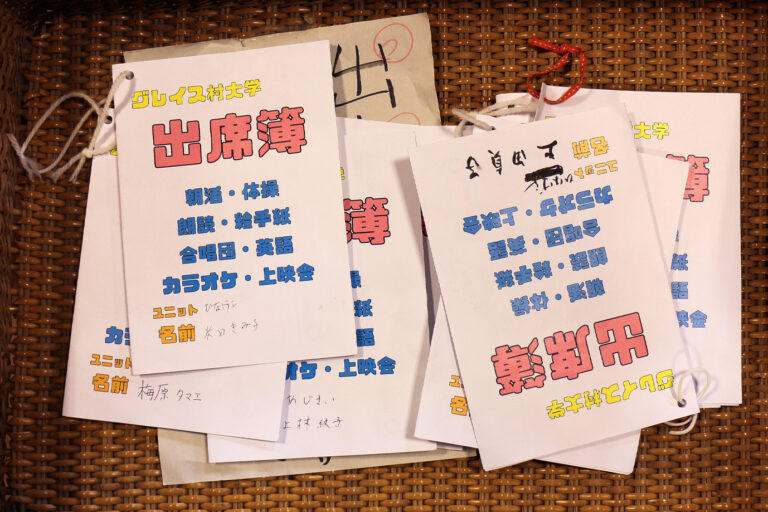 グレイス村大学
出席簿
朝活・体操
朗読・絵手紙
合唱団・英語
カラオケ・上映会
ユニット ひなげし
名前 米田きみ子
カラ
ユニット
名前 梅原タマエ
出
簿
操
紙
語
オケ・上映会
あじさい
上林紋子
グレイス村大学
出席簿
朝活・体操
朗読・絵手紙
合唱団・英語
カラオケ・上映会
ユニット ひなげし
名前 上田貞子
ユニ
名前
村大学
簿
操
紙
語
映会